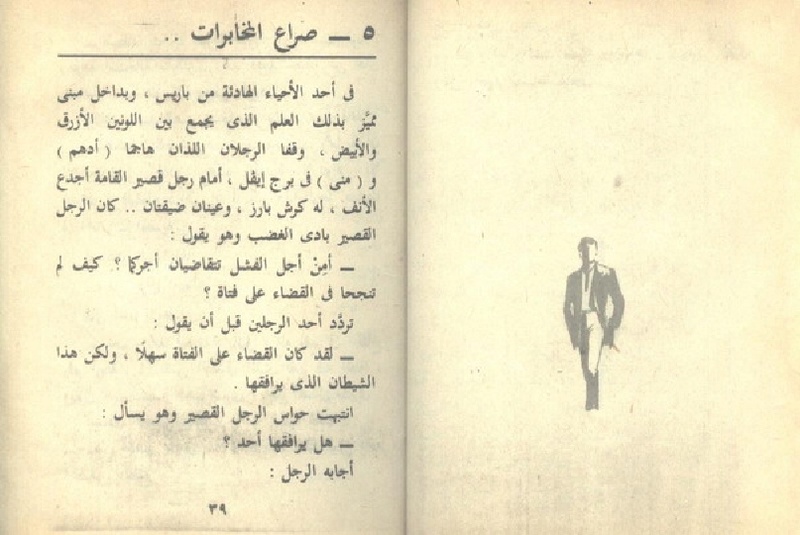 ٥ ــ صراع المخابرات ..
فى أحد الأحياء الهادئة من باريس ، وبداخل مبنى
مميَّز بذلك العلم الذى يجمع بين اللونين الأزرق
والأبيض ، وقفا الرجلان اللذان هاجما ( أدهم )
و ( منى ) فى برج إيفل ، أمام رجل قصير القامة أجدع
الأنف ، له كرش بارز ، وعينان ضيقتان .. كان الرجل
القصير بادى الغضب وهو يقول :
ــ أمِنْ أجل الفشل تتقاضيان أجركما ؟ كيف لم
تنجحا فى القضاء على فتاة ؟
تردَّد أحد الرجلين قبل أن يقول :
ــ لقد كان القضاء على الفتاة سهلًا ، ولكن هذا
الشيطان الذى يرافقها .
انتبهت حواس الرجل القصير وهو يسأل :
ــ هل يرافقها أحد ؟
أجابه الرجل :
٣٩